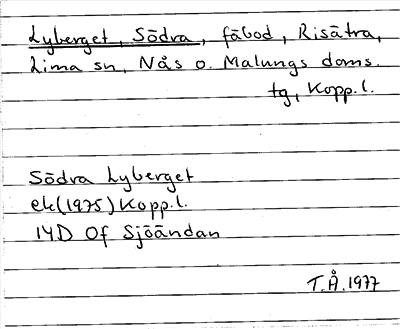 Lyberget, Södra, fäbod, Risätra,
Lima sn, Nås o. Malungs doms.
tg, Kopp. l.
Södra Lyberget
ek(1975) Kopp. l.
14D Of Sjöändan
T.Å. 1977